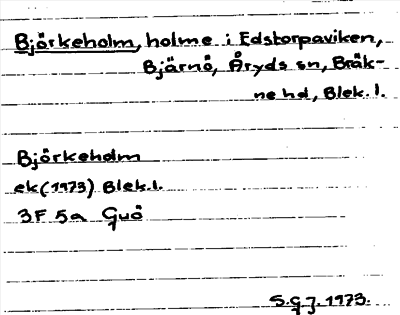 Björkeholm, holme i Edstorpaviken,
Bjärnö, Åryds sn, Bräk-
ne hd, Blek. l.
Björkeholm
ek (1973) Blek. l.
3F 5a Guö
S.G J. 1973.